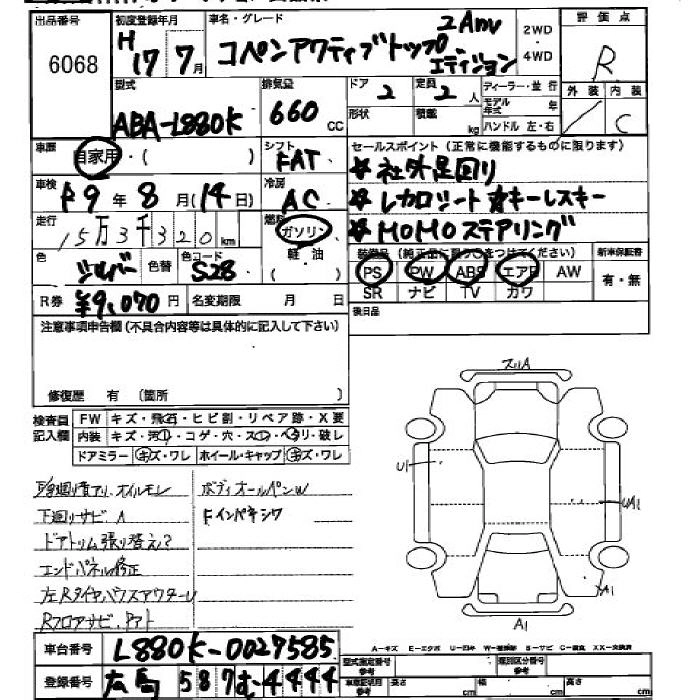 出品番号
6068
初度登録年月
H17 7月
車名・グレード
コペンアクティブトップ 2 Anv エディション
2WD・4WD
評価点
R
外装 内装
／ C
型式
ABA-L880K
排気量
660 CC
ドア 2
定員 2 人
形状
積載 kg
ディーラー・並行
モデル年式 年
ハンドル 左・右
車歴
自家用・( )
シフト
FAT
セールスポイント (正常に機能するものに限ります)
☆社外足回り
☆レカロシート ☆キーレスキー
☆MOMOステアリング
車検
R9年8月(14日)
冷房
AC
走行
15万3千320km
燃料
ガソリン
軽油
色
シルバー
色替
色コード
S28
装備品 (純正品に限り○をつけてください)
PS PW ABS エアB AW
SR ナビ TV カワ
新車保証書
有・無
R券 ¥9,070円
名変期限 月 日
後日品
注意事項申告欄(不具合内容等は具体的に記入して下さい)
修復歴 有 (箇所 )
検査員記入欄
FW キズ・飛石・ヒビ割・リペア跡・X要
内装 キズ・汚れ・コゲ・穴・スレ・ヘタリ・破レ
ドアミラー キズ・ワレ ホイール・キャップ キズ・ワレ
オイルモレ ボディオールペンW
下廻りサビ.A
ドアトリム張り替え?
エンドパネル修正
左Rタイヤハウスアウター
Rフロアサビ
スリA
U1
UA1
A1
A1
A-キズ E-エクボ U-凹み S-サビ C-腐食 XX-交換済
車台番号 L880K-0027585
登録番号 広島 587 む 4444
型式指定番号 参考
類別区分番号 参考
車庫証明用 参考
長さ cm 幅 cm 高さ cm